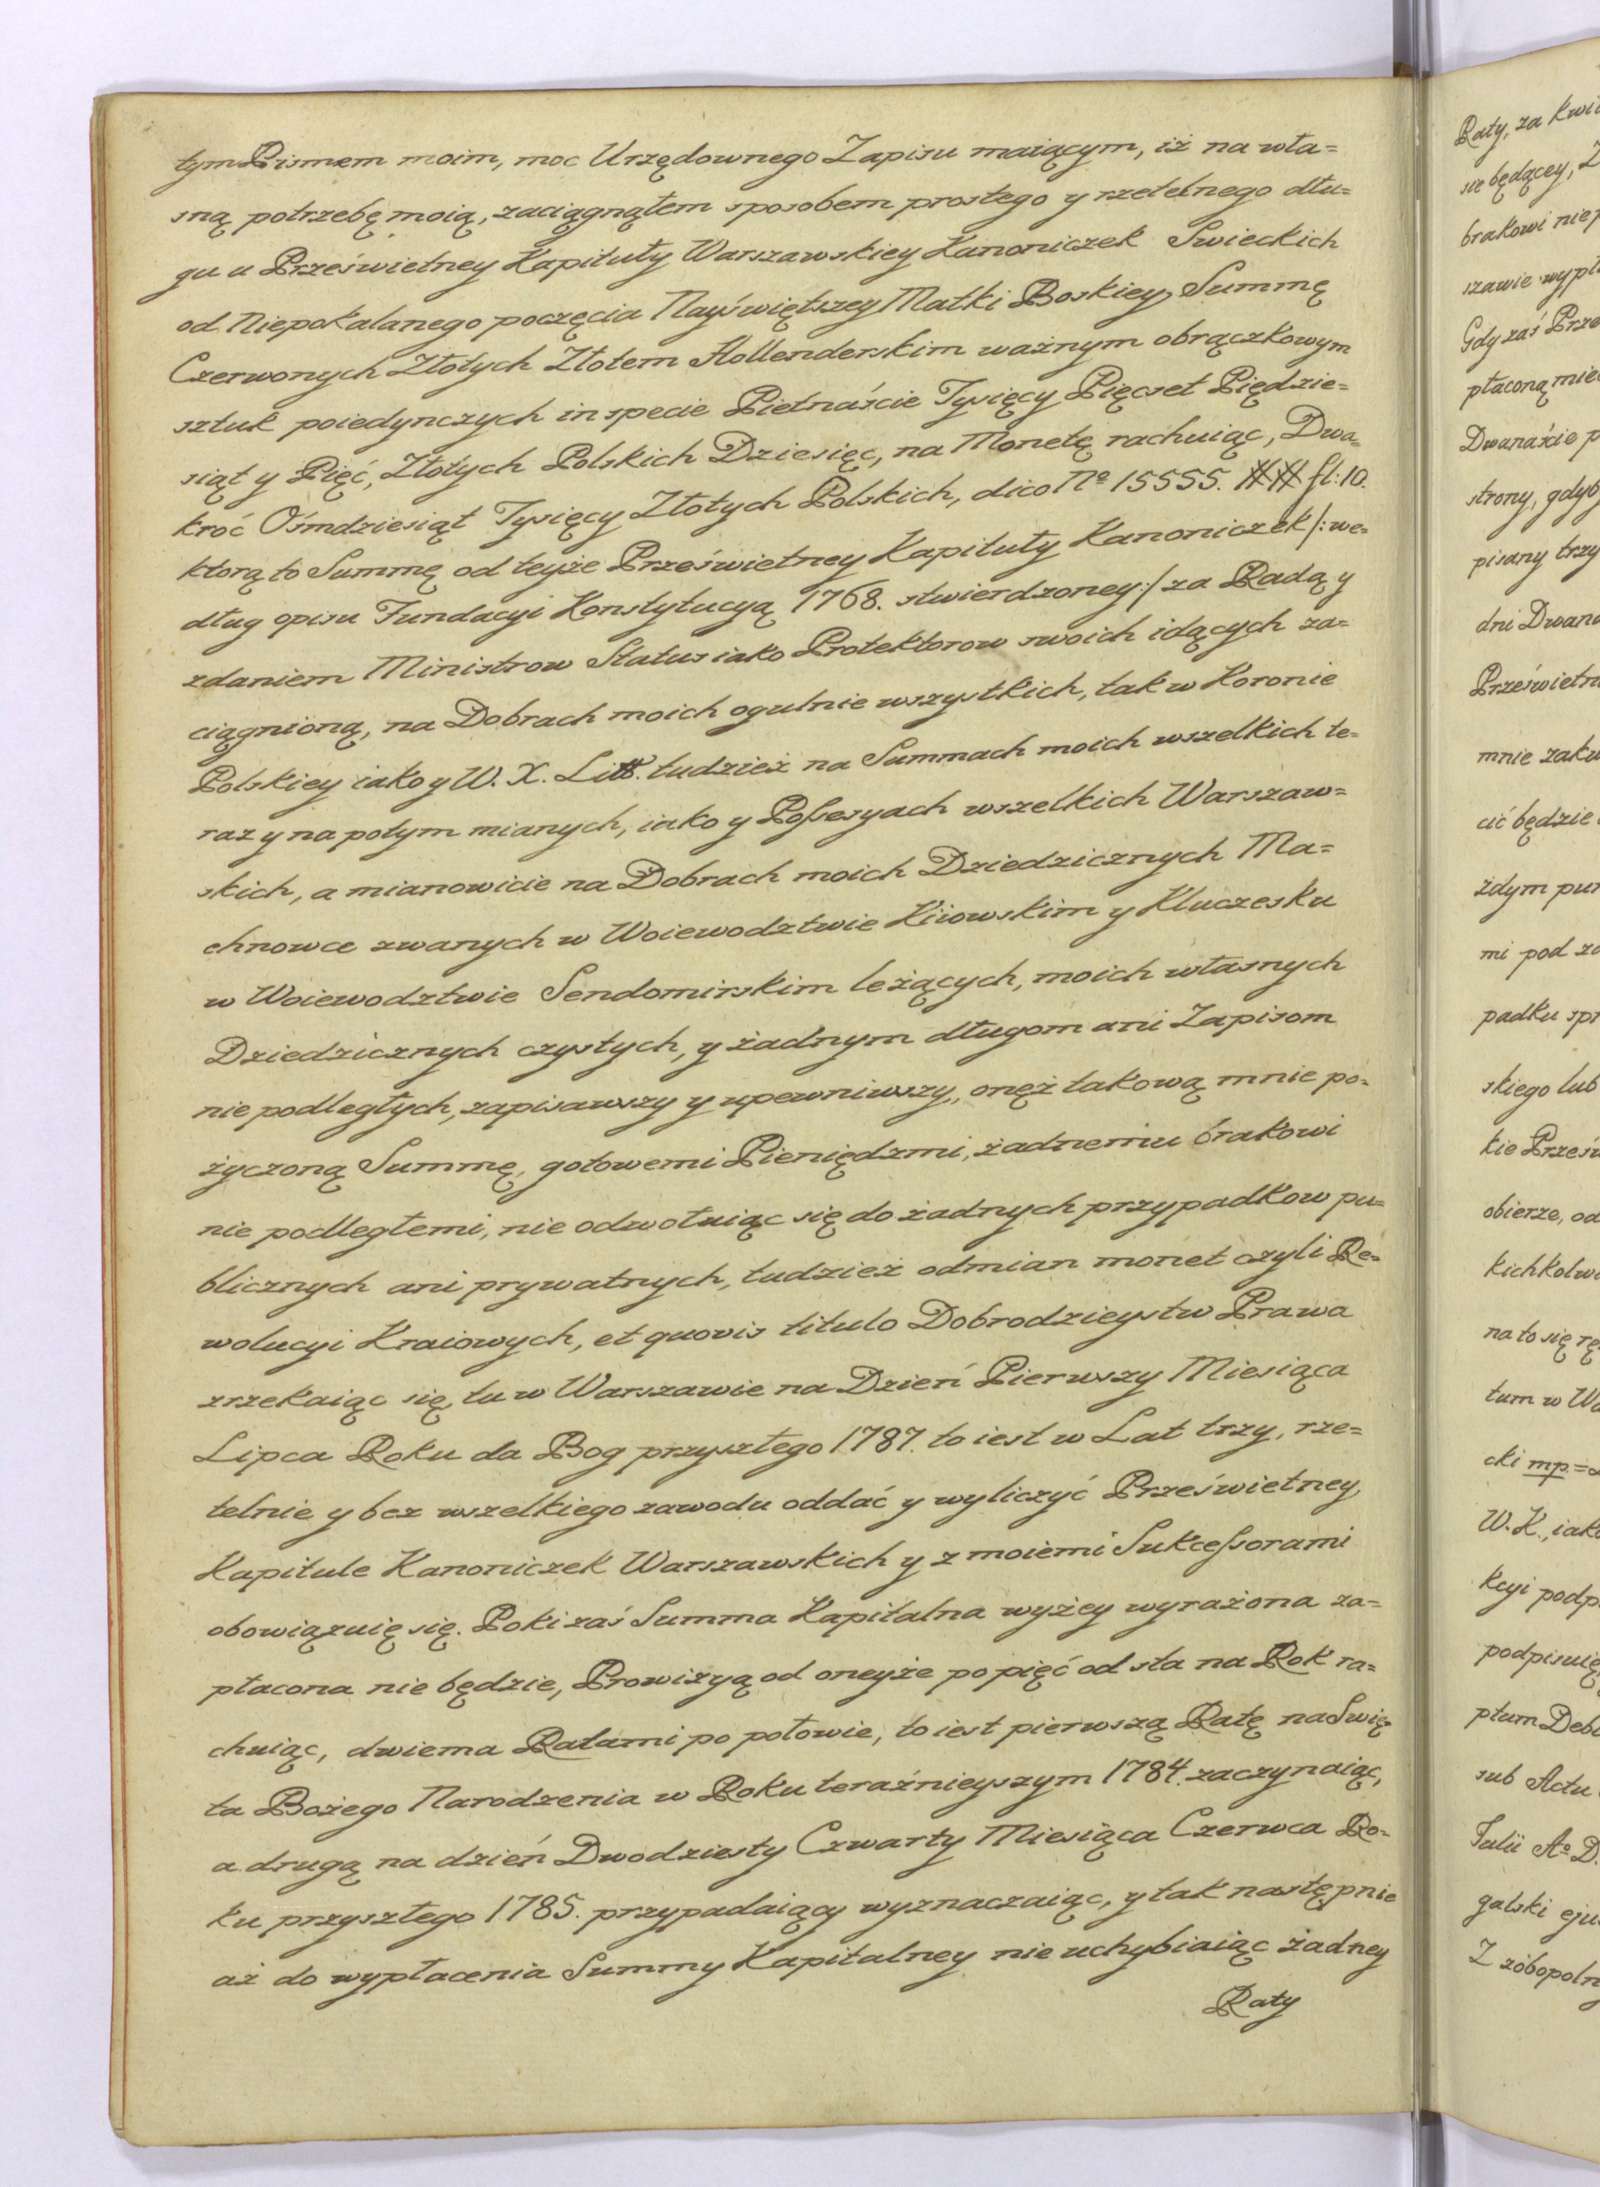 tym Pismem moim, moc Urzędownego Zapisu maiącym, iż na wła=
sną potrzebę moią, zaciągnąłem sposobem prostego y rzetelnego dłu=
gu u Prześwietney Kapituły Warszawskiey Kanoniczek Swieckich
od Niepokalanego poczęcia Nayświętszey Matki Boskiey, Summę
Czerwonych Złotych Złotem Hollenderskim ważnym obrączkowym
sztuk poiedynczych in specie Pietnaście Tysięcy Pięcset Piędzie=
siąt y Pięć, Złotych Polskich Dziesięc, na Monetę rachuiąc, Dwa=
kroć Ośmdziesiąt Tysięcy Złotych Polskich, dico No 15555. ## fl: 10.
ktorą to Summę od teyże Prześwietney Kapituły Kanoniczek /: we=
dług opisu Fundacyi Konstytucyą 1768. stwierdzoney :/ za Radą y
zdaniem Ministrow Status iako Protektorow swoich idących za=
ciągnioną, na Dobrach moich ogulnie wszystkich, tak w Koronie
Polskiey iako y W. X. Litt. tudzież na Summach moich wszelkich te=
raz y na potym mianych, iako y Possesyach wszelkich Warszaw=
skich, a mianowicie na Dobrach moich Dziedzicznych Ma=
chnowce zwanych w Woiewodztwie Kiiowskim y Kluczesku
w Woiewodztwie Sendomirskim leżących, moich własnych
Dziedzicznych czystych, y żadnym długom ani Zapisom
nie podległych, zapisawszy y upewniwszy, onęż takową mnie po=
życzoną Summę, gotowemi Pieniędzmi, żadnemu brakowi
nie podległemi, nie odwołuiąc się do żadnych przypadkow pu=
blicznych ani prywatnych, tudzież odmian monet czyli Re=
wolucyi Kraiowych, et quovis titulo Dobrodzieystw Prawa
zrzekaiąc się, tu w Warszawie na Dzień Pierwszy Miesiąca
Lipca Roku da Bog przyszłego 1787. to iest w Lat trzy, rze=
telnie y bez wszelkiego zawodu oddać y wyliczyć Prześwietney
Kapitule Kanoniczek Warszawskich y z moiemi Sukcessorami
obowiązuię się. Poki zaś Summa Kapitalna wyżey wyrażona za=
płacona nie będzie, Prowizyą od oneyże po pięć od sta na Rok ra=
chuiąc, dwiema Ratami po połowie, to iest pierwszą Ratę na Swię=
ta Bożego Narodzenia w Roku teraźnieyszym 1784. zaczynaiąc,
a drugą na dzień Dwodziesty Czwarty Miesiąca Czerwca Ro=
ku przyszłego 1785. przypadaiący wyznaczaiąc, y tak następnie
aż do wypłacenia Summy Kapitalney nie uchybiaiąc żadney
Raty
Raty, za
brakowi
Gdy zaś
płaconą
Dwanaście
strony,
pisany trzy
mnie
cić będzie
mi pod
padku
skiego lub
obierze,
na to się
tum w
cki mp. =
W. K., iako
sub Actu
Julii Ao D.
galski